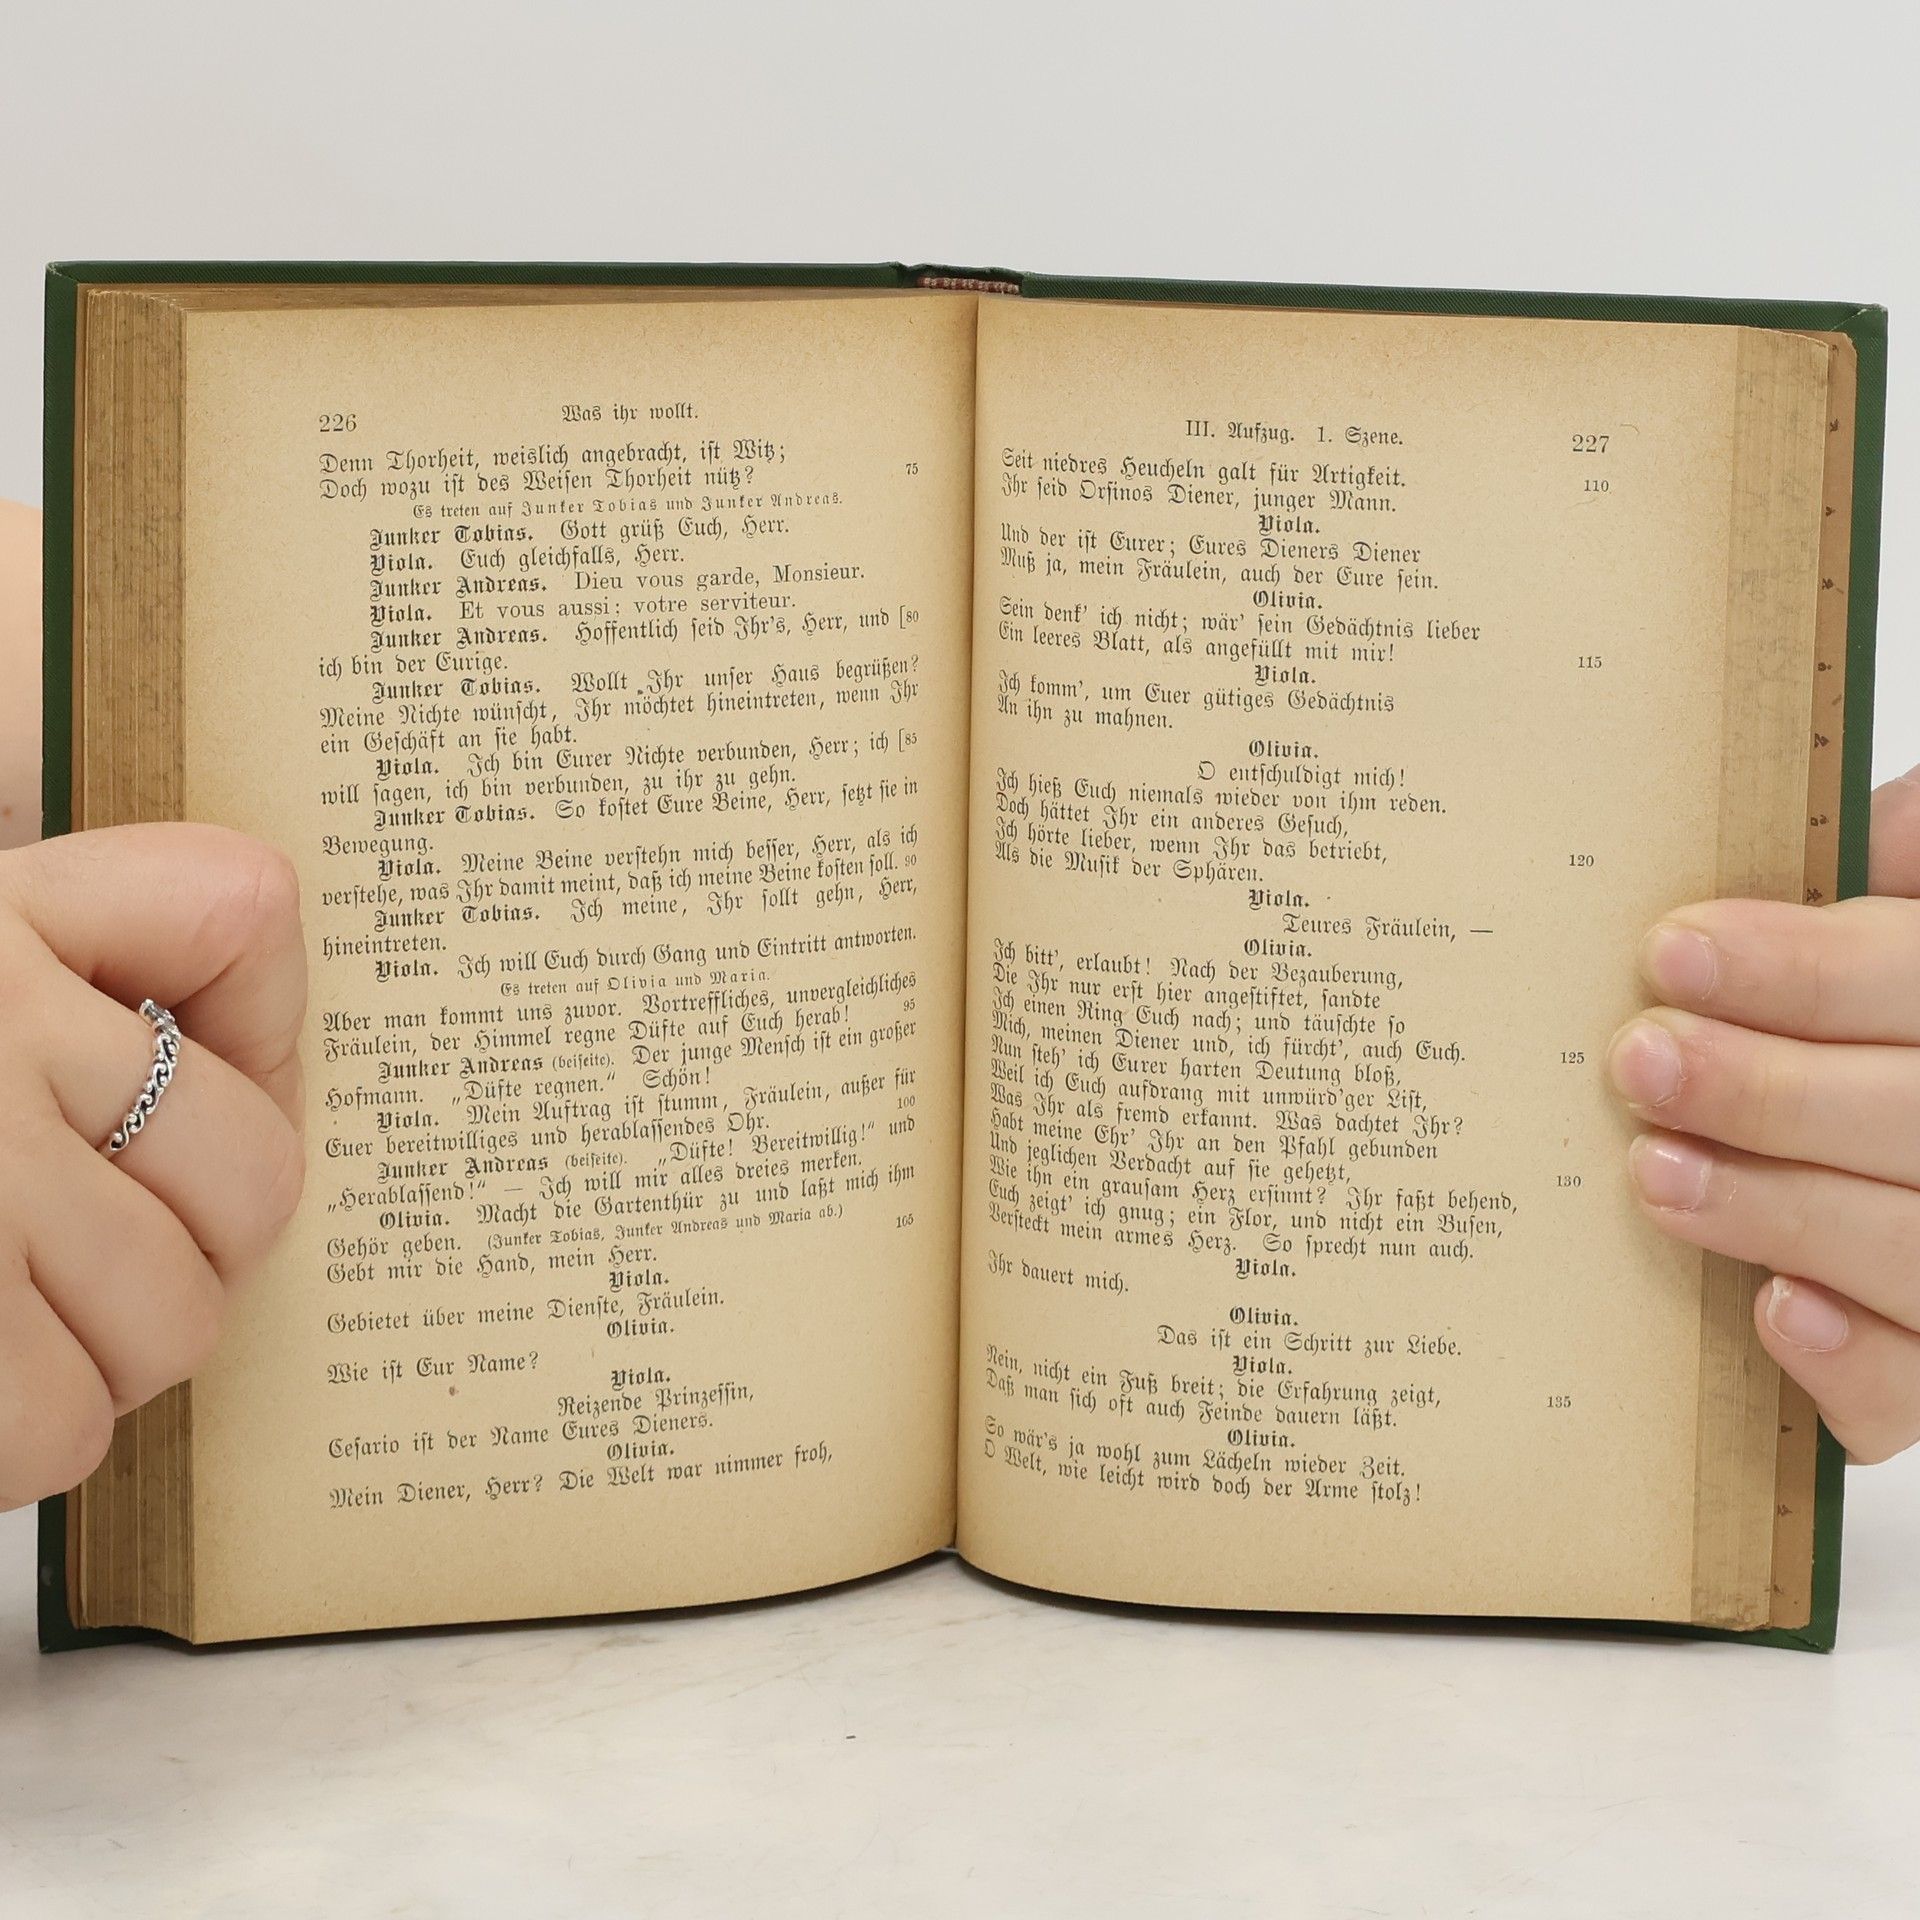 226
Was ihr wollt.
Denn Thorheit, weislich angebracht, ist Witz;
Doch wozu ist des Weisen Thorheit nütz? 75
Es treten auf Junker Tobias und Junker Andreas.
Junker Tobias. Gott grüß Euch, Herr.
Viola. Euch gleichfalls, Herr.
Junker Andreas. Dieu vous garde, Monsieur.
Viola. Et vous aussi; votre serviteur.
Junker Andreas. Hoffentlich seid Ihr's, Herr, und [80
ich bin der Eurige.
Junker Tobias. Wollt Ihr unser Haus begrüßen?
Meine Nichte wünscht, Ihr möchtet hineintreten, wenn Ihr
ein Geschäft an sie habt.
Viola. Ich bin Eurer Nichte verbunden, Herr; ich [85
will sagen, ich bin verbunden, zu ihr zu gehn.
Junker Tobias. So kostet Eure Beine, Herr, setzt sie in
Bewegung.
Viola. Meine Beine verstehn mich besser, Herr, als ich
verstehe, was Ihr damit meint, daß ich meine Beine kosten soll. 90
Junker Tobias. Ich meine, Ihr sollt gehn, Herr,
hineintreten.
Viola. Ich will Euch durch Gang und Eintritt antworten.
Es treten auf Olivia und Maria.
Aber man kommt uns zuvor. Vortreffliches, unvergleichliches
Fräulein, der Himmel regne Düfte auf Euch herab! 95
Junker Andreas (beiseite). Der junge Mensch ist ein großer
Hofmann. „Düfte regnen.“ Schön!
Viola. Mein Auftrag ist stumm, Fräulein, außer für
Euer bereitwilliges und herablassendes Ohr. 100
Junker Andreas (beiseite). „Düfte! Bereitwillig!“ und
„Herablassend!“ — Ich will mir alles dreies merken.
Olivia. Macht die Gartenthür zu und laßt mich ihm
Gehör geben. (Junker Tobias, Junker Andreas und Maria ab.)
Gebt mir die Hand, mein Herr. 105
Viola.
Gebietet über meine Dienste, Fräulein.
Olivia.
Wie ist Eur Name?
Viola.
Reizende Prinzessin,
Cesario ist der Name Eures Dieners.
Olivia.
Mein Diener, Herr? Die Welt war nimmer froh,
III. Aufzug. 1. Szene.
227
Seit niedres Heucheln galt für Artigkeit.
Ihr seid Orsinos Diener, junger Mann. 110
Viola.
Und der ist Eurer; Eures Dieners Diener
Muß ja, mein Fräulein, auch der Eure sein.
Olivia.
Sein denk' ich nicht; wär' sein Gedächtnis lieber
Ein leeres Blatt, als angefüllt mit mir!
Viola. 115
Ich komm', um Euer gütiges Gedächtnis
An ihn zu mahnen.
Olivia.
O entschuldigt mich!
Ich hieß Euch niemals wieder von ihm reden.
Doch hättet Ihr ein anderes Gesuch,
Ich hörte lieber, wenn Ihr das betriebt,
Als die Musik der Sphären. 120
Viola.
Teures Fräulein, —
Olivia.
Ich bitt', erlaubt! Nach der Bezauberung,
Die Ihr nur erst hier angestiftet, sandte
Ich einen Ring Euch nach; und täuschte so
Mich, meinen Diener und, ich fürcht', auch Euch.
Nun steh' ich Eurer harten Deutung bloß, 125
Weil ich Euch aufdrang mit unwürd'ger List,
Was Ihr als fremd erkannt. Was dachtet Ihr?
Habt meine Ehr' Ihr an den Pfahl gebunden
Und jeglichen Verdacht auf sie gehetzt,
Wie ihn ein grausam Herz ersinnt? Ihr faßt behend, 130
Euch zeigt' ich gnug; ein Flor, und nicht ein Busen,
Versteckt mein armes Herz. So sprecht nun auch.
Viola.
Ihr dauert mich.
Olivia.
Das ist ein Schritt zur Liebe.
Viola.
Nein, nicht ein Fuß breit; die Erfahrung zeigt,
Daß man sich oft auch Feinde dauern läßt. 135
Olivia.
So wär's ja wohl zum Lächeln wieder Zeit.
O Welt, wie leicht wird doch der Arme stolz!